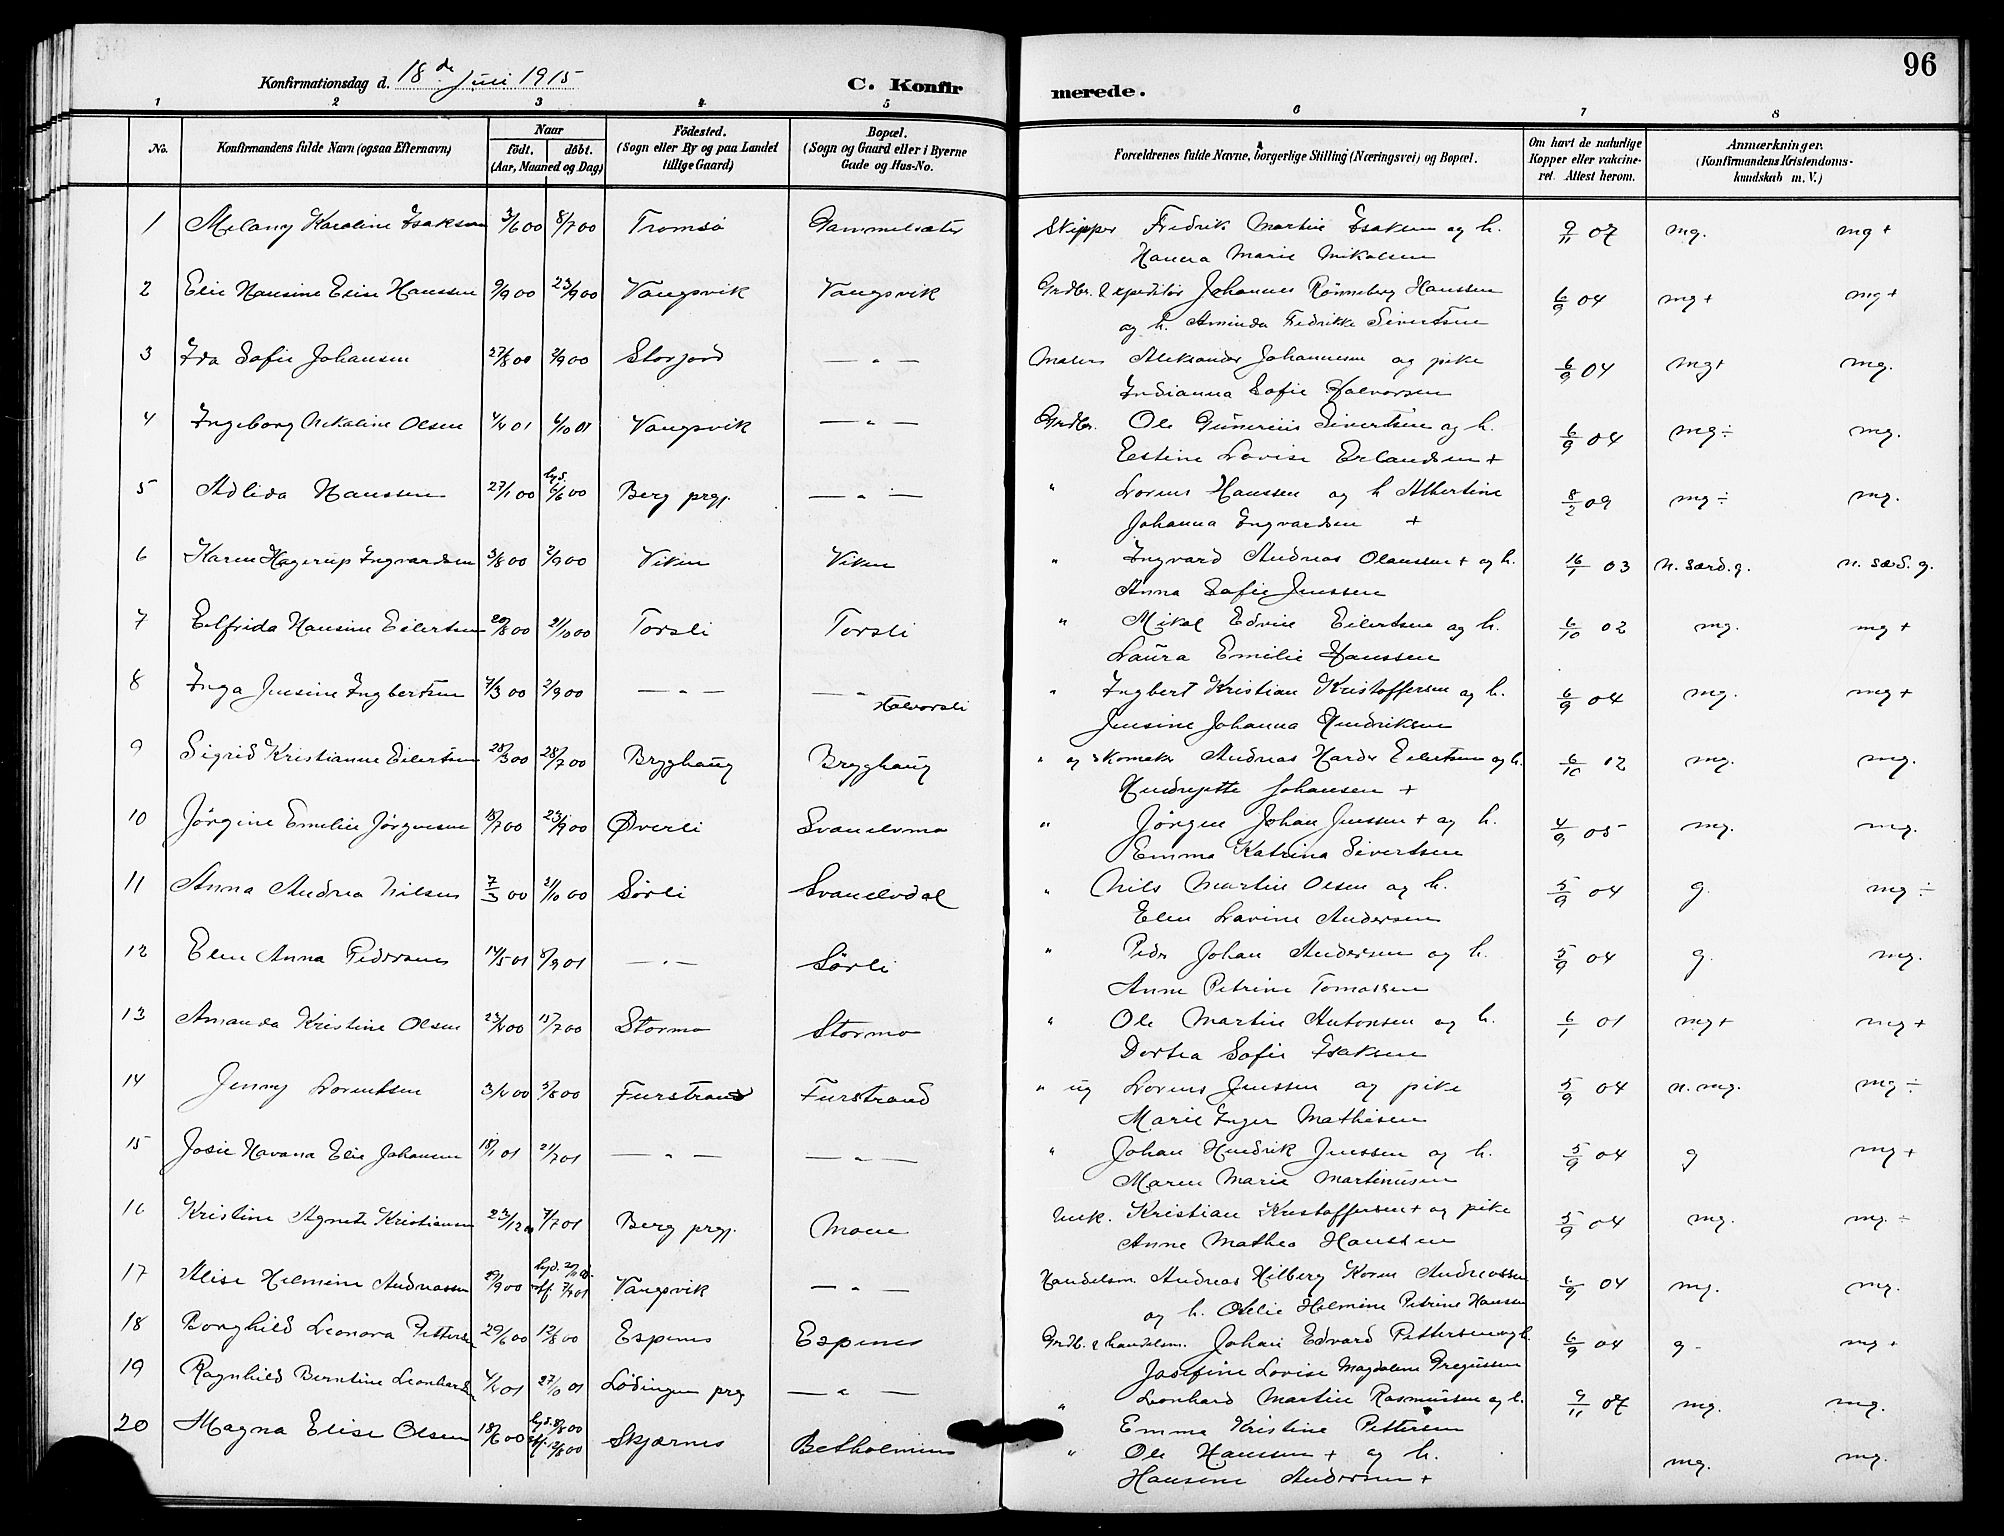 96
Konfirmationsdag d. 18de Juli 1915
C. Konfirmerede.
1 2 3 4 5 6 7 8
No.
Konfirmandens fulde Navn (ogsaa Efternavn)
Naar
födt. döbt.
(Aar, Maaned og Dag)
Födested.
(Sogn eller By og paa Landet tillige Gaard)
Bopæl.
(Sogn og Gaard eller i Byerne Gade og Hus-No.
Forældrenes fulde Navne, borgerlige Stilling (Næringsvei) og Bopæl.
Om havt de naturlige Kopper eller vakcineret. Attest herom.
Anmærkninger.
(Konfirmandens Kristendomskundskab m. V.)
1 Melany Karoline Isaksen 3/6 00 8/7 00 Tromsö Gammelsæter Skipper Fredrik Martin Isaksen og h. 9/11 07 mg. mg+
Hanna Marie Mikalsen
2 Elie Hansine Elise Hanssen 9/9 00 23/9 00 Vangsvik Vangsvik Grdbr. & expeditör Johannes Rönneberg Hanssen 6/9 04 mg+ mg+
og h. Aminda Fredrikke Sivertsen
3 Ida Sofie Johansen 27/8 00 2/9 00 Storjord — " — Maler Aleksander Johannesen og pike 6/9 04 mg+ mg.
Indianna Sofie Halvorsen
4 Ingeborg Nikoline Olsen 4/4 01 6/10 01 Vangsvik — " — Grdbr. Ole Gunerius Sivertsen og h. 6/9 04 mg÷ mg.
Estine Lovise Erlandsen +
5 Adlida Hanssen 27/1 00 hjd. 6/6 00 Berg prgj. — " — " Lorens Hanssen og h Albertine 8/2 09 mg÷ mg.
Johanna Ingvardsen +
6 Karen Hagerup Ingvardsen 3/8 00 2/9 00 Viken Viken " Ingvard Andreas Olaussen + og h. 16/1 03 n. særd. g. n. sæd. g.
Anna Sofie Jenssen
7 Elfrida Hansine Eilertsen 20/8 00 21/10 00 Torsli Torsli " Mikal Edvin Eilertsen og h. 6/10 02 mg. mg+
Laura Emilie Hanssen
8 Inga Jensine Ingbertsen 7/3 00 2/9 00 — " — — " Halvorsli " Ingbert Kristian Kristoffersen og h. 6/9 04 mg. mg+
Jensine Johanna Hendriksen
9 Sigrid Kristianne Eilertsen 28/3 00 28/7 00 Brygghaug Brygghaug " og skomaker Andreas Harder Eilertsen og h. 6/10 02 mg. mg.
Hendrejette Johansen +
10 Jörgine Emelie Jörgensen 18/7 00 23/9 00 Øverli Svanelvmo " Jörgen Johan Jenssen + og h. 4/9 05 mg. mg.
Emma Katrina Sivertsen
11 Anna Andrea Nilsen 7/3 00 21/10 00 Sörli Svanelvdal " Nils Martin Olsen og h. 5/9 04 g. mg÷
Elen Lavine Andersen
12 Elen Anna Pedersen 14/5 01 8/9 01 — " — Sörli " Peder Johan Andersen og h. 5/9 04 g. mg.
Anne Petrine Tomassen
13 Amanda Kristine Olsen 23/4 00 15/7 00 Stormo Stormo " Ole Martin Antonsen og h. 6/1 01 mg+ mg+
Dortea Sofie Isaksen
14 Jenny Lorentsen 3/4 00 5/8 00 Furstrand Furstrand " ug Lorens Jenssen og pike 5/9 04 n. mg. mg÷
Marie Inger Mathisen
15 Josie Havana Elie Johansen 18/1 01 21/7 01 — " — — " — " Johan Hendrik Jenssen og h. 5/9 04 g mg+
Maren Marie Martinusen
16 Kristine Agnete Kristiansen 23/12 00 7/7 01 Berg prgj. Moen Enk. Kristian Kristoffersen + og pike 5/9 04 mg. mg.÷
Anne Mathea Hanssen
17 Alise Helmine Andreassen 29/9 00 hjd. stf. 7/7 01 Vangsvik — " — Handelsm. Andreas Hilberg Koren Andreassen 6/9 04 mg. mg.
og h. Otelie Helmine Petrine Hanssen
18 Borghild Leonora Pettersen 29/6 00 12/8 00 Espenes Espenes Grdb. & handelsm. Johan Edvard Pettersen og h. 6/9 04 g- mg+
Josefine Lovise Magdalene Gregussen
19 Ragnhild Berntine Leonhardsen 4/4 01 27/10 01 Lödingen prgj — " — " Leonhard Martin Rasmussen og h. 9/11 07 mg. mg.
Emma Kristine Pettersen
20 Magna Elise Olsen 18/6 00 hjd. 8/8 00 stf. 12/8 00 Skjærnes Betholmen " Ole Hanssen + og h. mg. mg.
Hansine Andersen +